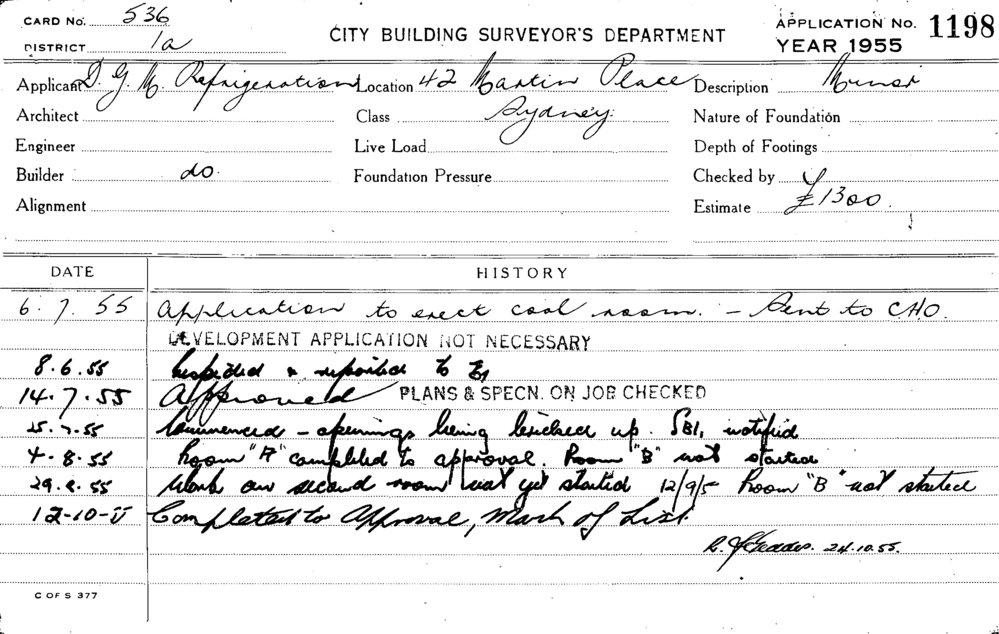 CARD No. 536
DISTRICT 1a
CITY BUILDING SURVEYOR'S DEPARTMENT
APPLICATION No. 1198
YEAR 1955
Applicant D. G. M. Refrigeration Location 42 Martin Place Description Minor
Architect Class Sydney. Nature of Foundation
Engineer Live Load Depth of Footings
Builder do. Foundation Pressure Checked by
Alignment Estimate £1300.
DATE HISTORY
6. 7. 55 Application to erect cool room. - Sent to CHO.
DEVELOPMENT APPLICATION NOT NECESSARY
8.6.55 Inspected & reported to
14.7.55 Approved PLANS & SPECN. ON JOB CHECKED
25.7.55 Commenced - openings being bricked up. SBI, notified
4.8.55 Room "A" completed to approval. Room "B" not started
29.8.55 Work on second room not yet started 12/9/5 Room "B" not started
12-10-55 Completed to Approval, Mark of List.
24.10.55.
C OF S 377